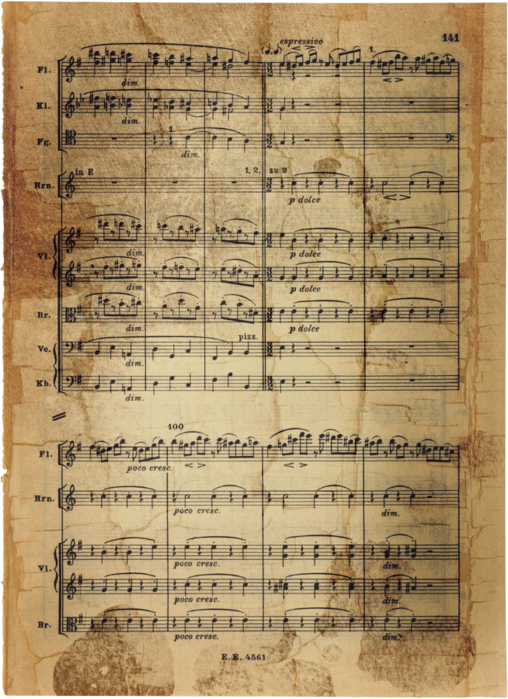 141
espressivo
1.
Fl.
dim.
Kl.
dim.
Fg.
dim.
Hrn. in E 1. 2. zu 2
p dolce
Vl.
dim. p dolce
dim. p dolce
Br.
dim. p dolce
pizz.
Vc.
dim.
Kb.
dim.
100
Fl.
poco cresc.
Hrn.
poco cresc. dim.
Vl.
poco cresc. dim.
poco cresc. dim.
Br.
poco cresc. dim.
E.E. 4561